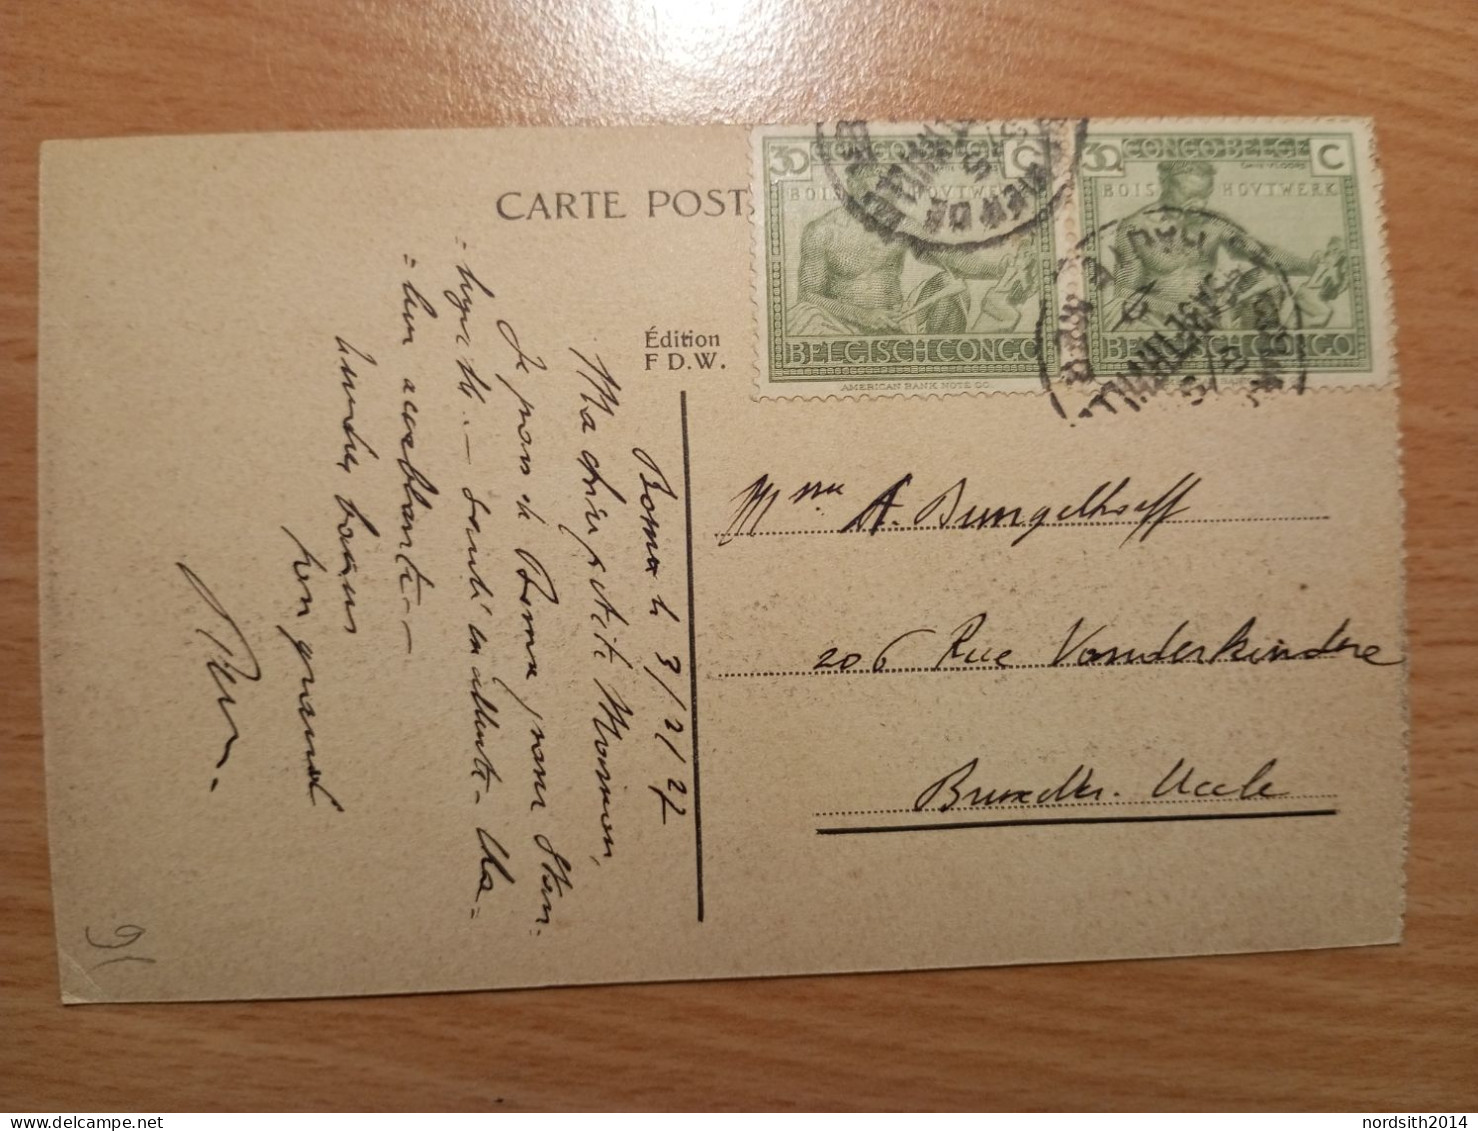 CARTE POST
Édition
F D.W.
30 CONGO BELGE C
BOIS HOVTWERK
BELGISCH CONGO
AMERICAN BANK NOTE CO.
30 CONGO BELGE C
BOIS HOVTWERK
BELGISCH CONGO
Boma le 3/2/27
Ma chère petite Maman,
Je pars de Boma pour Stan-
santé excellente - Cha-
-leur accablante -
bons baisers
ton grand
Mme A. Bungelhoff
206 Rue Vanderkindere
Bruxelles. Uccle
nordsith2014
delcampe.net